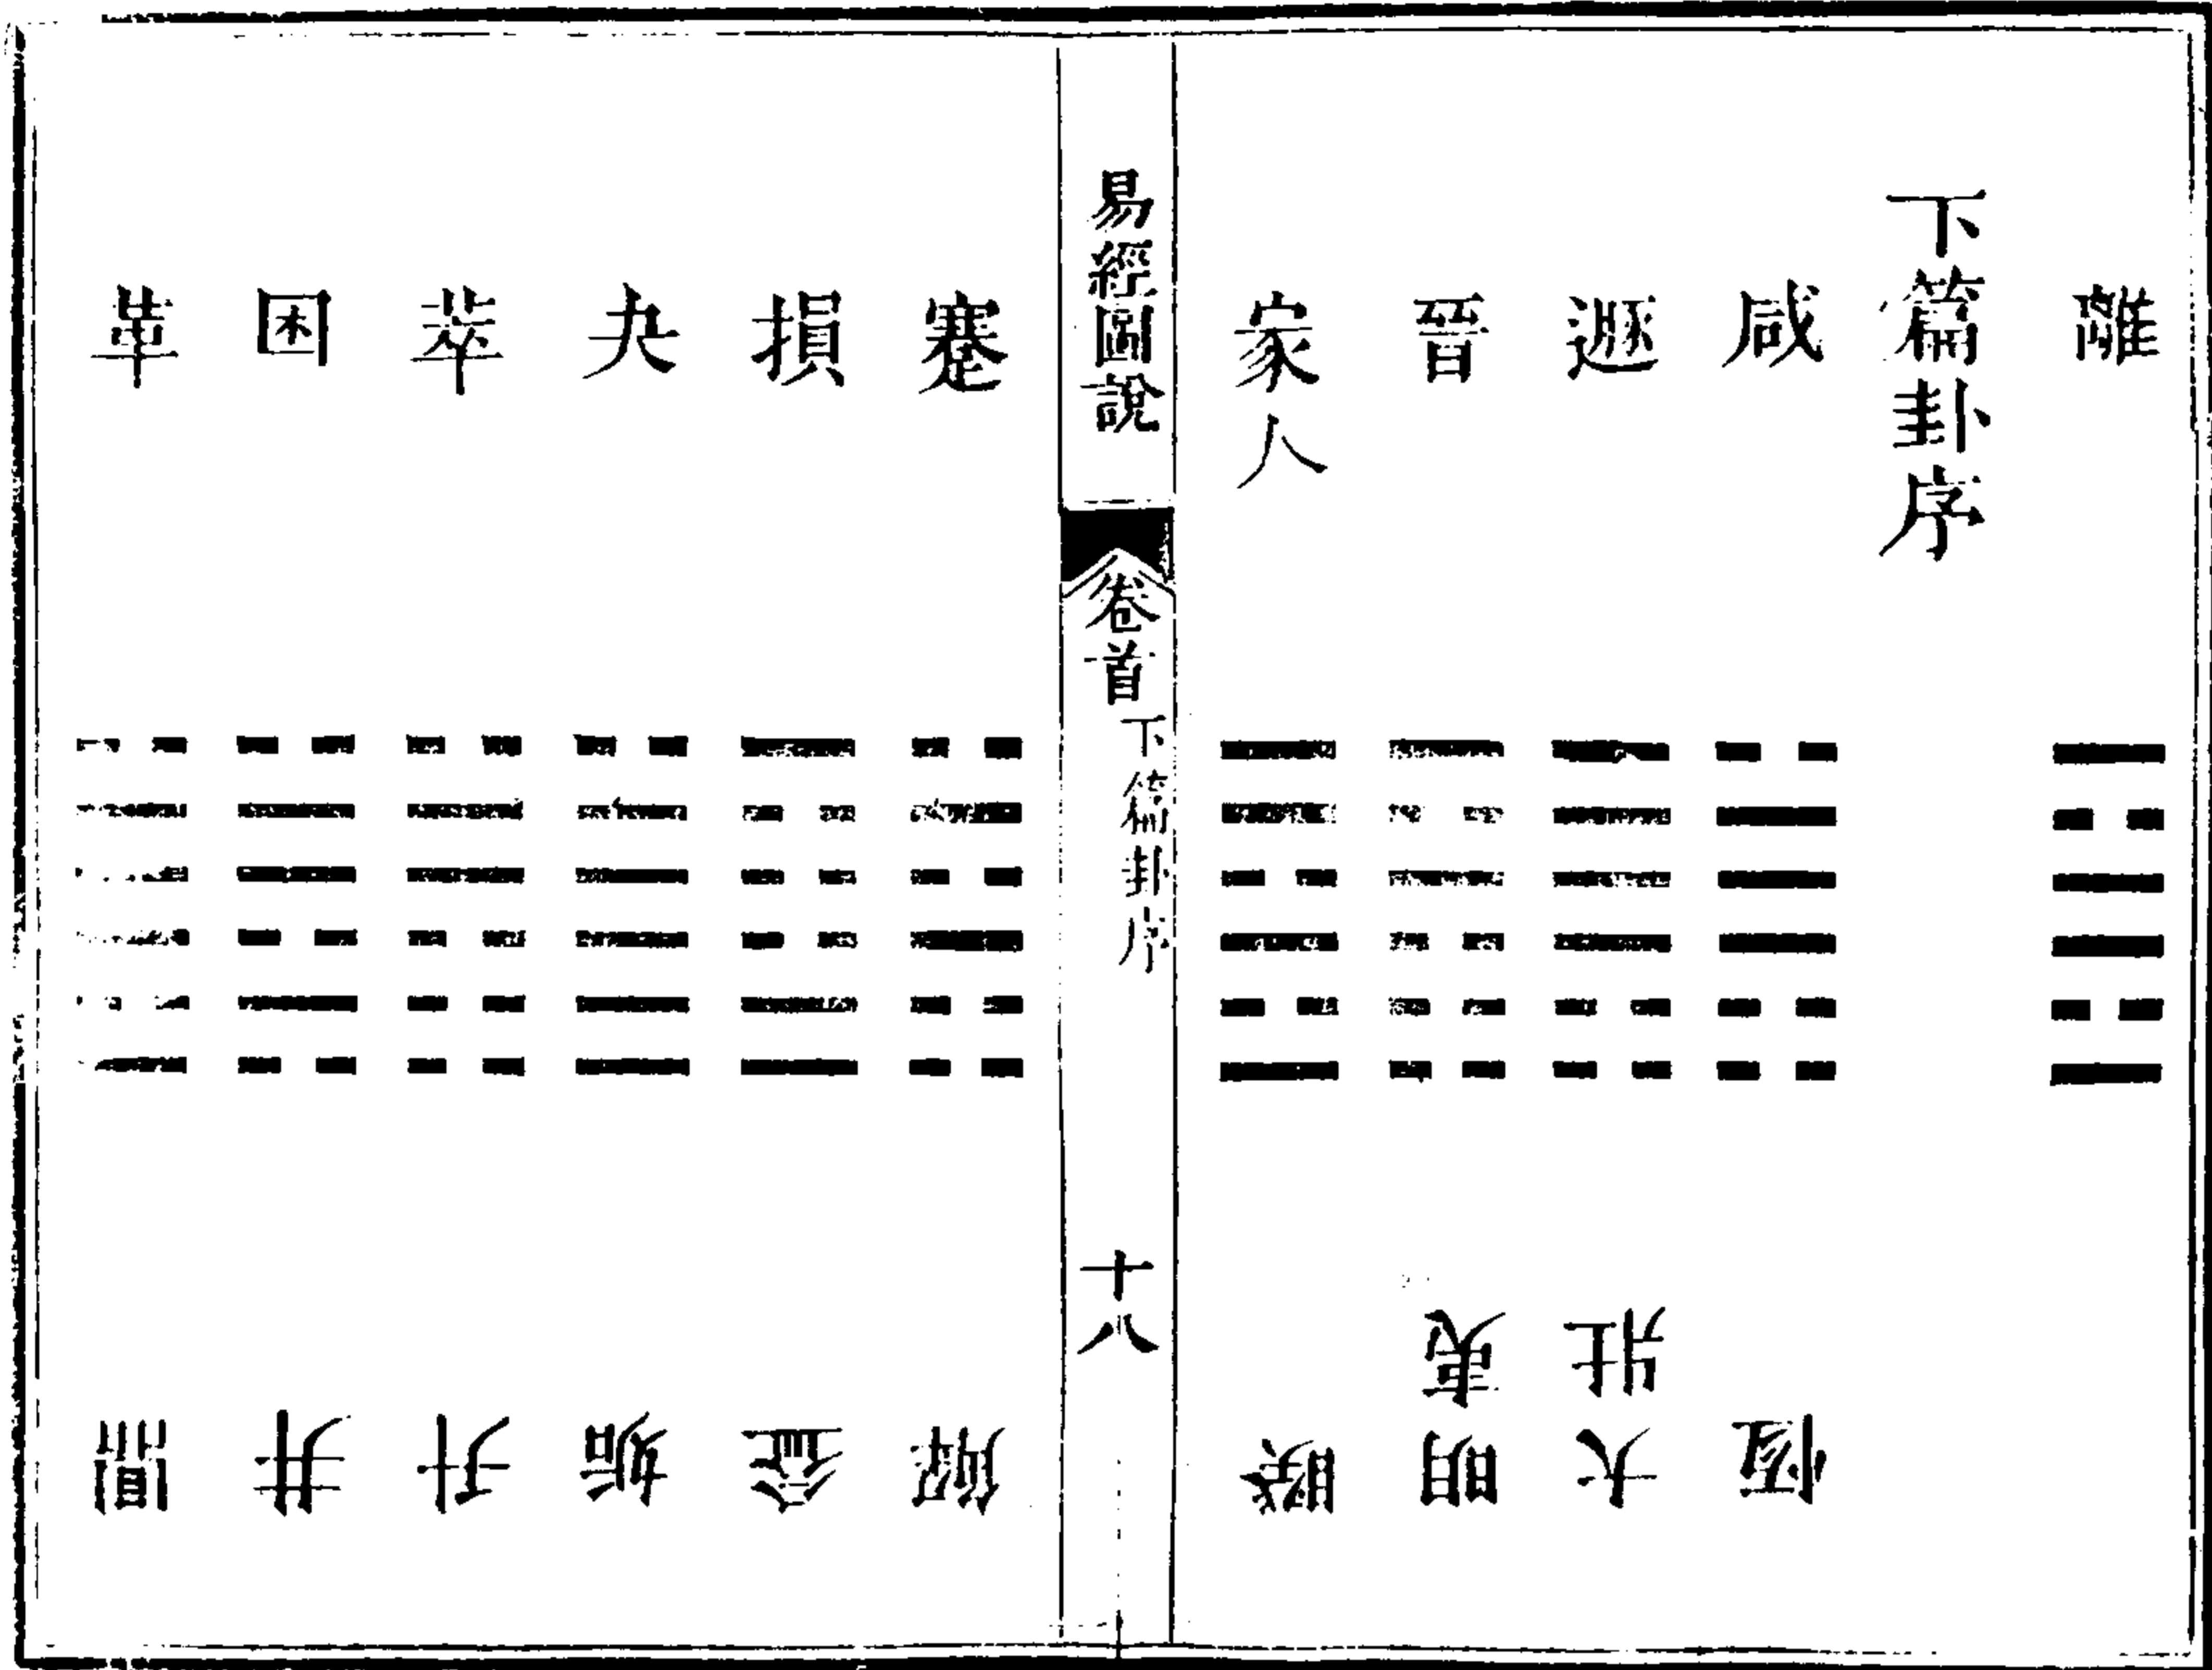 離
下篇卦序
咸
恆
遯
大壯
晉
明夷
家人
睽
易經圖說
卷首
下篇卦序
十八
蹇
解
損
益
夬
姤
萃
升
困
井
革
鼎